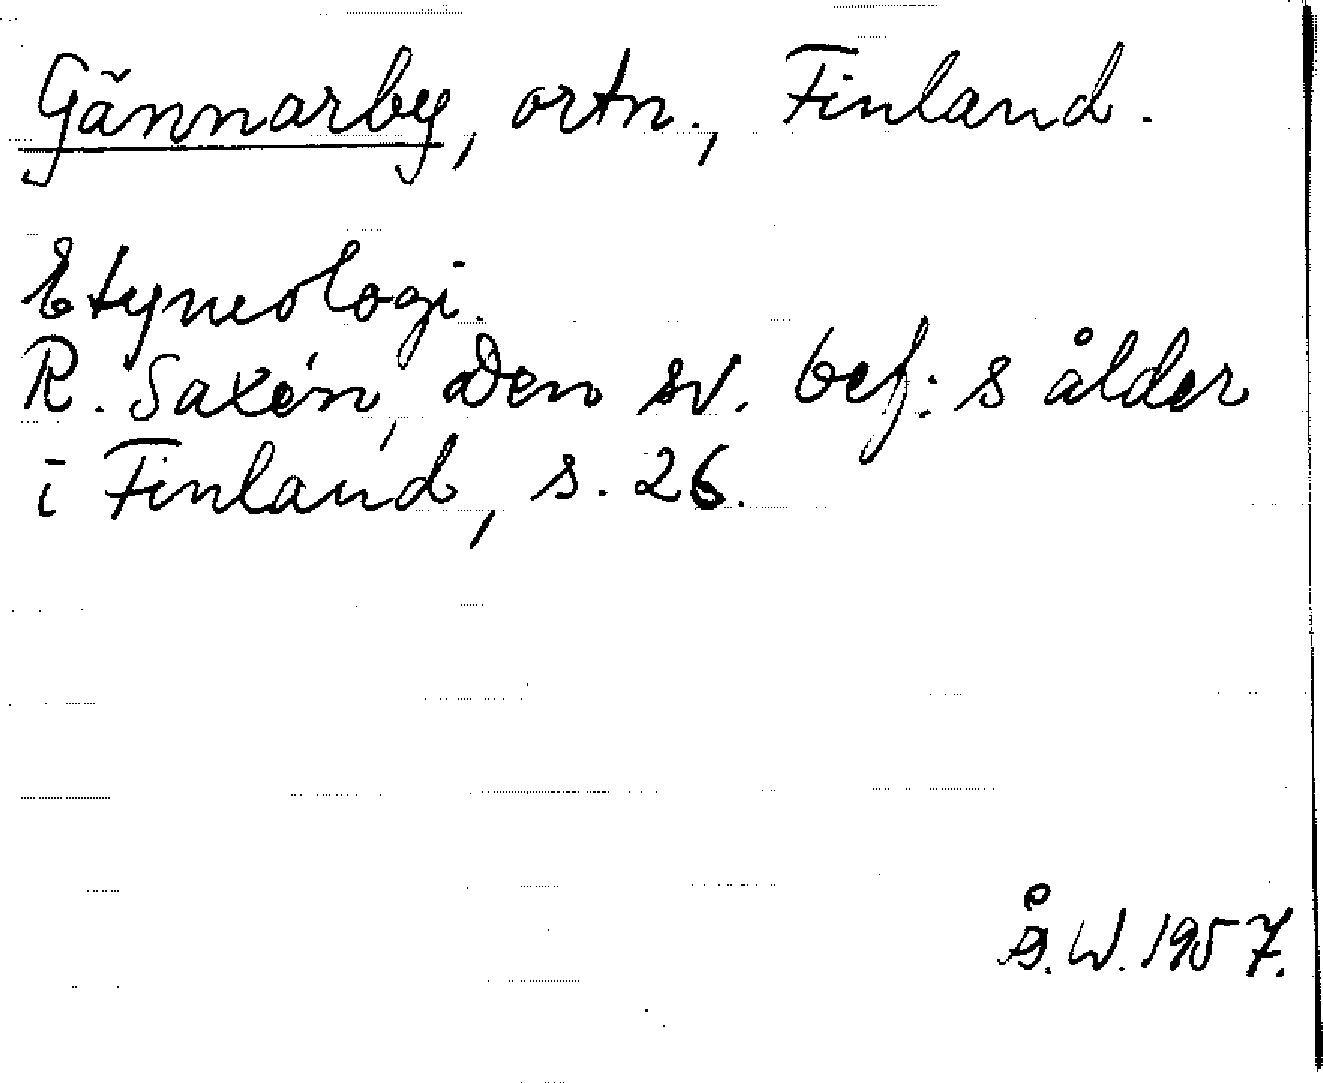 Gännarby, ortn., Finland.
Etymologi.
R. Saxén, Den sv. bef:s ålder
i Finland, s. 26.
Å.W. 1957.